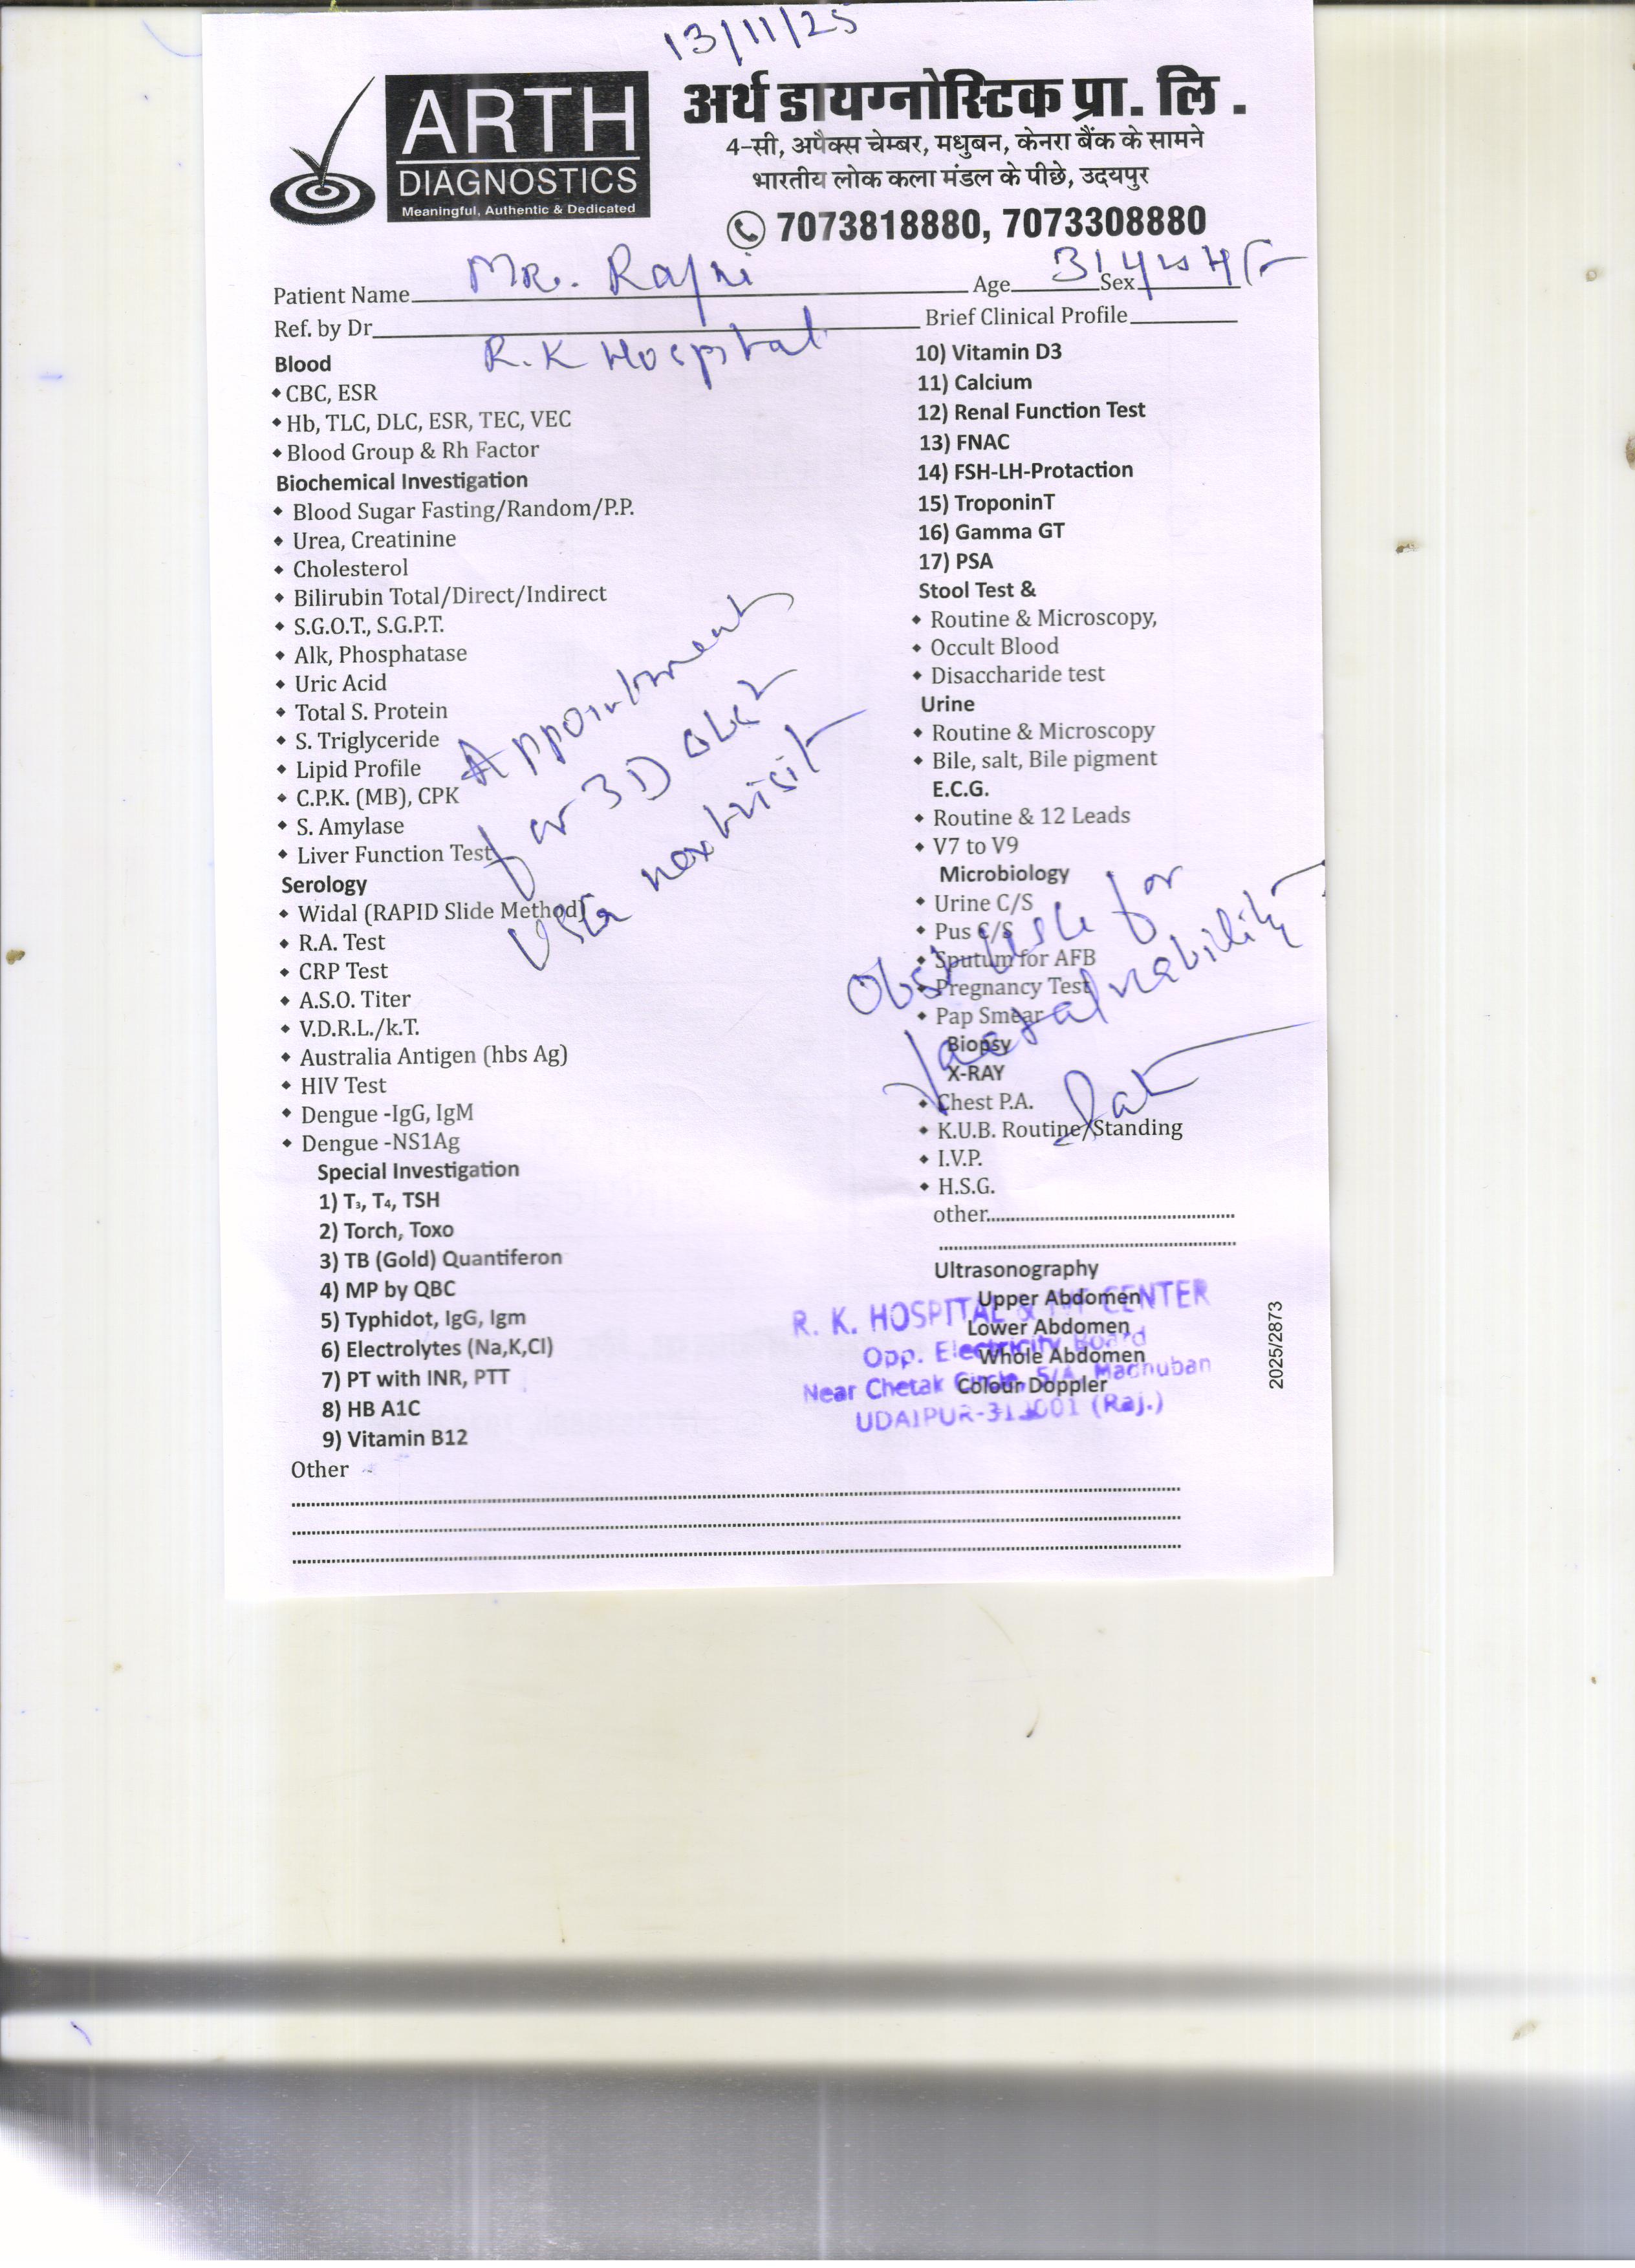 13/11/25
ARTH
DIAGNOSTICS
Meaningful, Authentic & Dedicated
अर्थ डायग्नोस्टिक प्रा. लि .
4-सी, अपैक्स चेम्बर, मधुबन, केनरा बैंक के सामने
भारतीय लोक कला मंडल के पीछे, उदयपुर
7073818880, 7073308880
Patient Name Mr. Rajni Age 31 Sex
Ref. by Dr R.K Hospital Brief Clinical Profile
Blood
CBC, ESR
Hb, TLC, DLC, ESR, TEC, VEC
Blood Group & Rh Factor
Biochemical Investigation
Blood Sugar Fasting/Random/P.P.
Urea, Creatinine
Cholesterol
Bilirubin Total/Direct/Indirect
S.G.O.T., S.G.P.T.
Alk, Phosphatase
Uric Acid
Total S. Protein
S. Triglyceride
Lipid Profile
C.P.K. (MB), CPK
S. Amylase
Liver Function Test
Serology
Widal (RAPID Slide Method)
R.A. Test
CRP Test
A.S.O. Titer
V.D.R.L./k.T.
Australia Antigen (hbs Ag)
HIV Test
Dengue -IgG, IgM
Dengue -NS1Ag
Special Investigation
1) T₃, T₄, TSH
2) Torch, Toxo
3) TB (Gold) Quantiferon
4) MP by QBC
5) Typhidot, IgG, Igm
6) Electrolytes (Na,K,Cl)
7) PT with INR, PTT
8) HB A1C
9) Vitamin B12
Other
Appointment
for 3D obst
next visit
10) Vitamin D3
11) Calcium
12) Renal Function Test
13) FNAC
14) FSH-LH-Protaction
15) TroponinT
16) Gamma GT
17) PSA
Stool Test &
Routine & Microscopy,
Occult Blood
Disaccharide test
Urine
Routine & Microscopy
Bile, salt, Bile pigment
E.C.G.
Routine & 12 Leads
V7 to V9
Microbiology
Urine C/S
Pus C/S
Sputum for AFB
Pregnancy Test
Pap Smear
Biopsy
X-RAY
Chest P.A.
K.U.B. Routine/Standing
I.V.P.
H.S.G.
other
Obst for
viability
Ultrasonography
Upper Abdomen
Lower Abdomen
Whole Abdomen
Colour Doppler
R. K. HOSPITAL & IVF CENTER
Opp. Electricity Board
Near Chetak Circle, 5/A, Madhuban
UDAIPUR-313001 (Raj.)
2025/2873